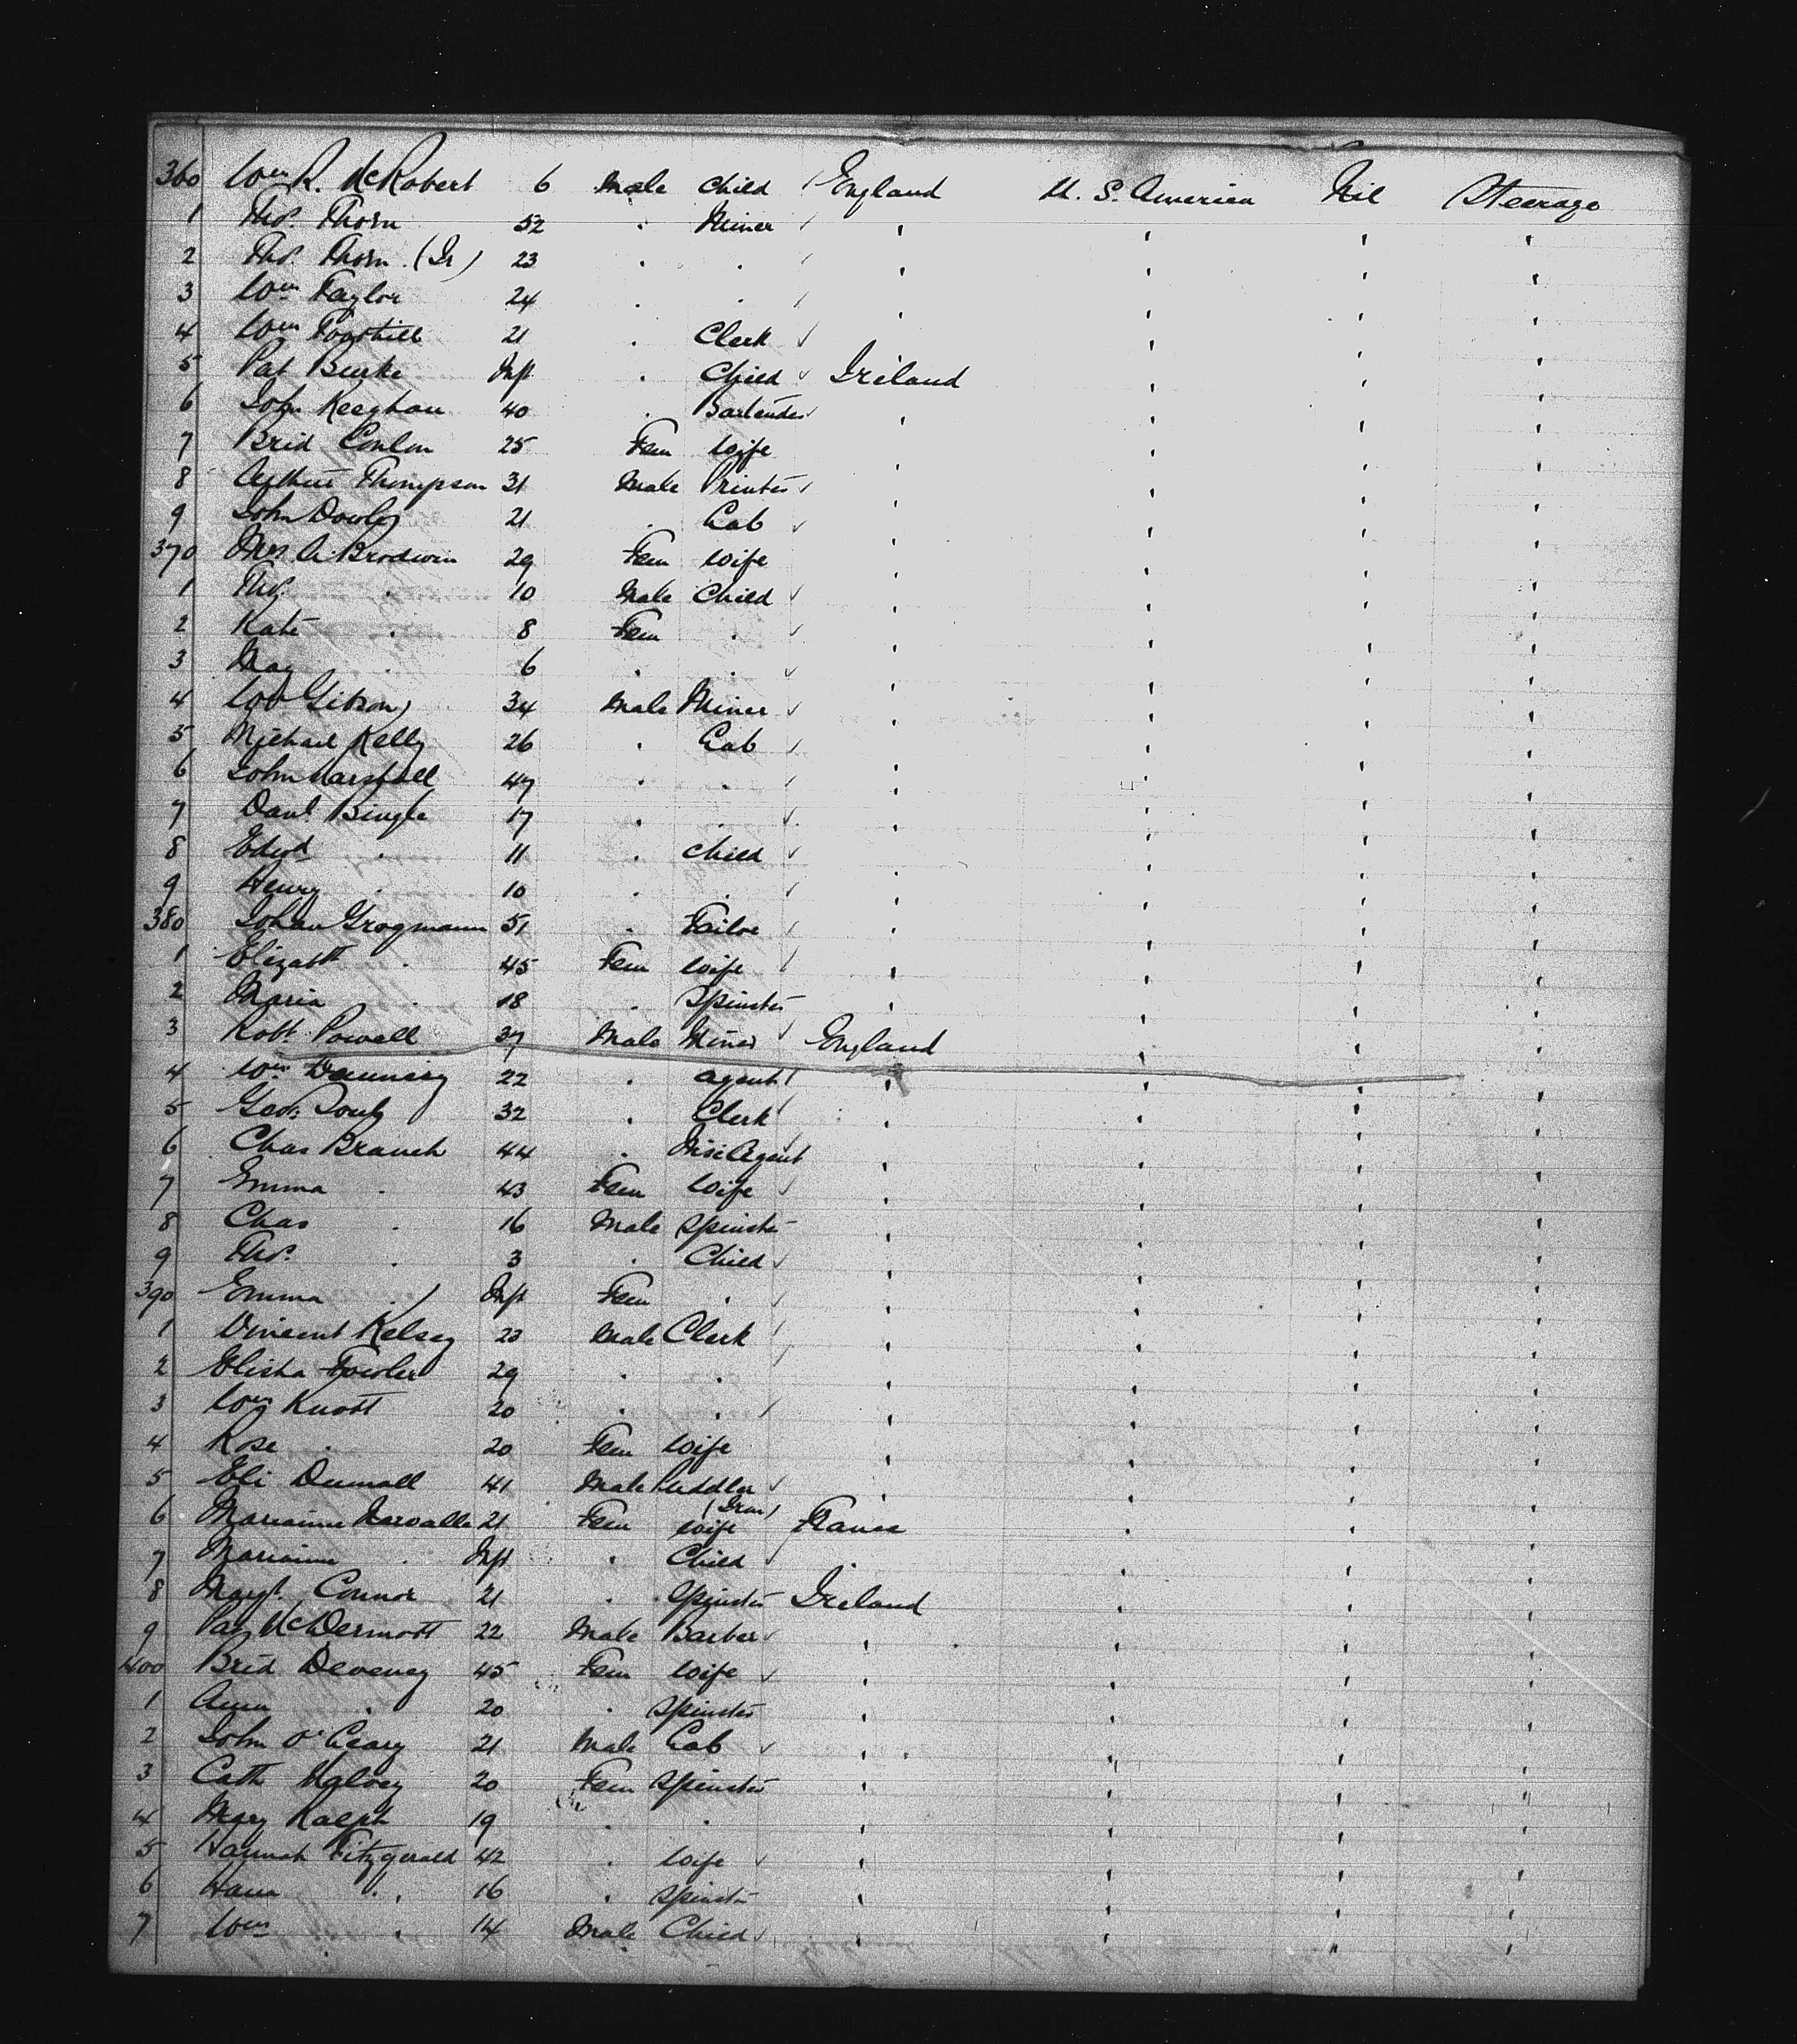 360 Wm R. McRobert 6 Male Child England U. S. America Nil Steerage
1 Tho. Thorn 52 " Miner " " " "
2 Tho. Thorn (Jr) 23 " " " " " "
3 Wm Taylor 24 " " " " " "
4 Wm Toothill 21 " Clerk " " " "
5 Pat Burke Inft " Child Ireland " " "
6 John Keeghan 40 " Bartender " " " "
7 Brid Conlon 25 Fem Wife " " " "
8 Arthur Thompson 31 Male Printer " " " "
9 John Dowley 21 " Lab " " " "
370 Mrs. A. Brodwin 29 Fem Wife " " " "
1 Tho. " 10 Male Child " " " "
2 Kate " 8 Fem " " " " "
3 May " 6 " " " " " "
4 Wm Gibson 34 Male Miner " " " "
5 Michael Kelly 26 " Lab " " " "
6 John Marshall 47 " " " " " "
7 Danl. Bingle 17 " " " " " "
8 Edwd " 11 " Child " " " "
9 Henry " 10 " " " " " "
380 Johan Grogmann 51 " Tailor " " " "
1 Elizabth " 45 Fem Wife " " " "
2 Maria " 18 " Spinster " " " "
3 Robt. Powell 37 Male Miner England " " "
4 Wm 22 " Agent " " " "
5 Geo. 32 " Clerk " " " "
6 Chas Branch 44 " Agent " " " "
7 Emma " 43 Fem Wife " " " "
8 Chas " 16 Male Spinster " " " "
9 Tho. " 3 " Child " " " "
390 Emma " Inft Fem " " " " "
1 Vincent Kelsey 23 Male Clerk " " " "
2 Elisha Fowler 29 " " " " " "
3 Wm Knott 20 " " " " " "
4 Rose " 20 Fem Wife " " " "
5 Eli Dumall 41 Male Puddler " " " "
(Iron)
6 Marianne Narvalle 21 Fem Wife France " " "
7 Marianne " Inft " Child " " " "
8 Margt. Connor 21 " Spinster Ireland " " "
9 Pat McDermott 22 Male Barber " " " "
400 Brid Deveney 45 Fem Wife " " " "
1 Ann " 20 " Spinster " " " "
2 John O'Leary 21 Male Lab " " " "
3 Cath Malvey 20 Fem Spinster " " " "
4 Mary Ralph 19 " " " " " "
5 Hannah Fitzgerald 42 " Wife " " " "
6 Hann " 16 " Spinster " " " "
7 Wm " 14 Male Child " " " "